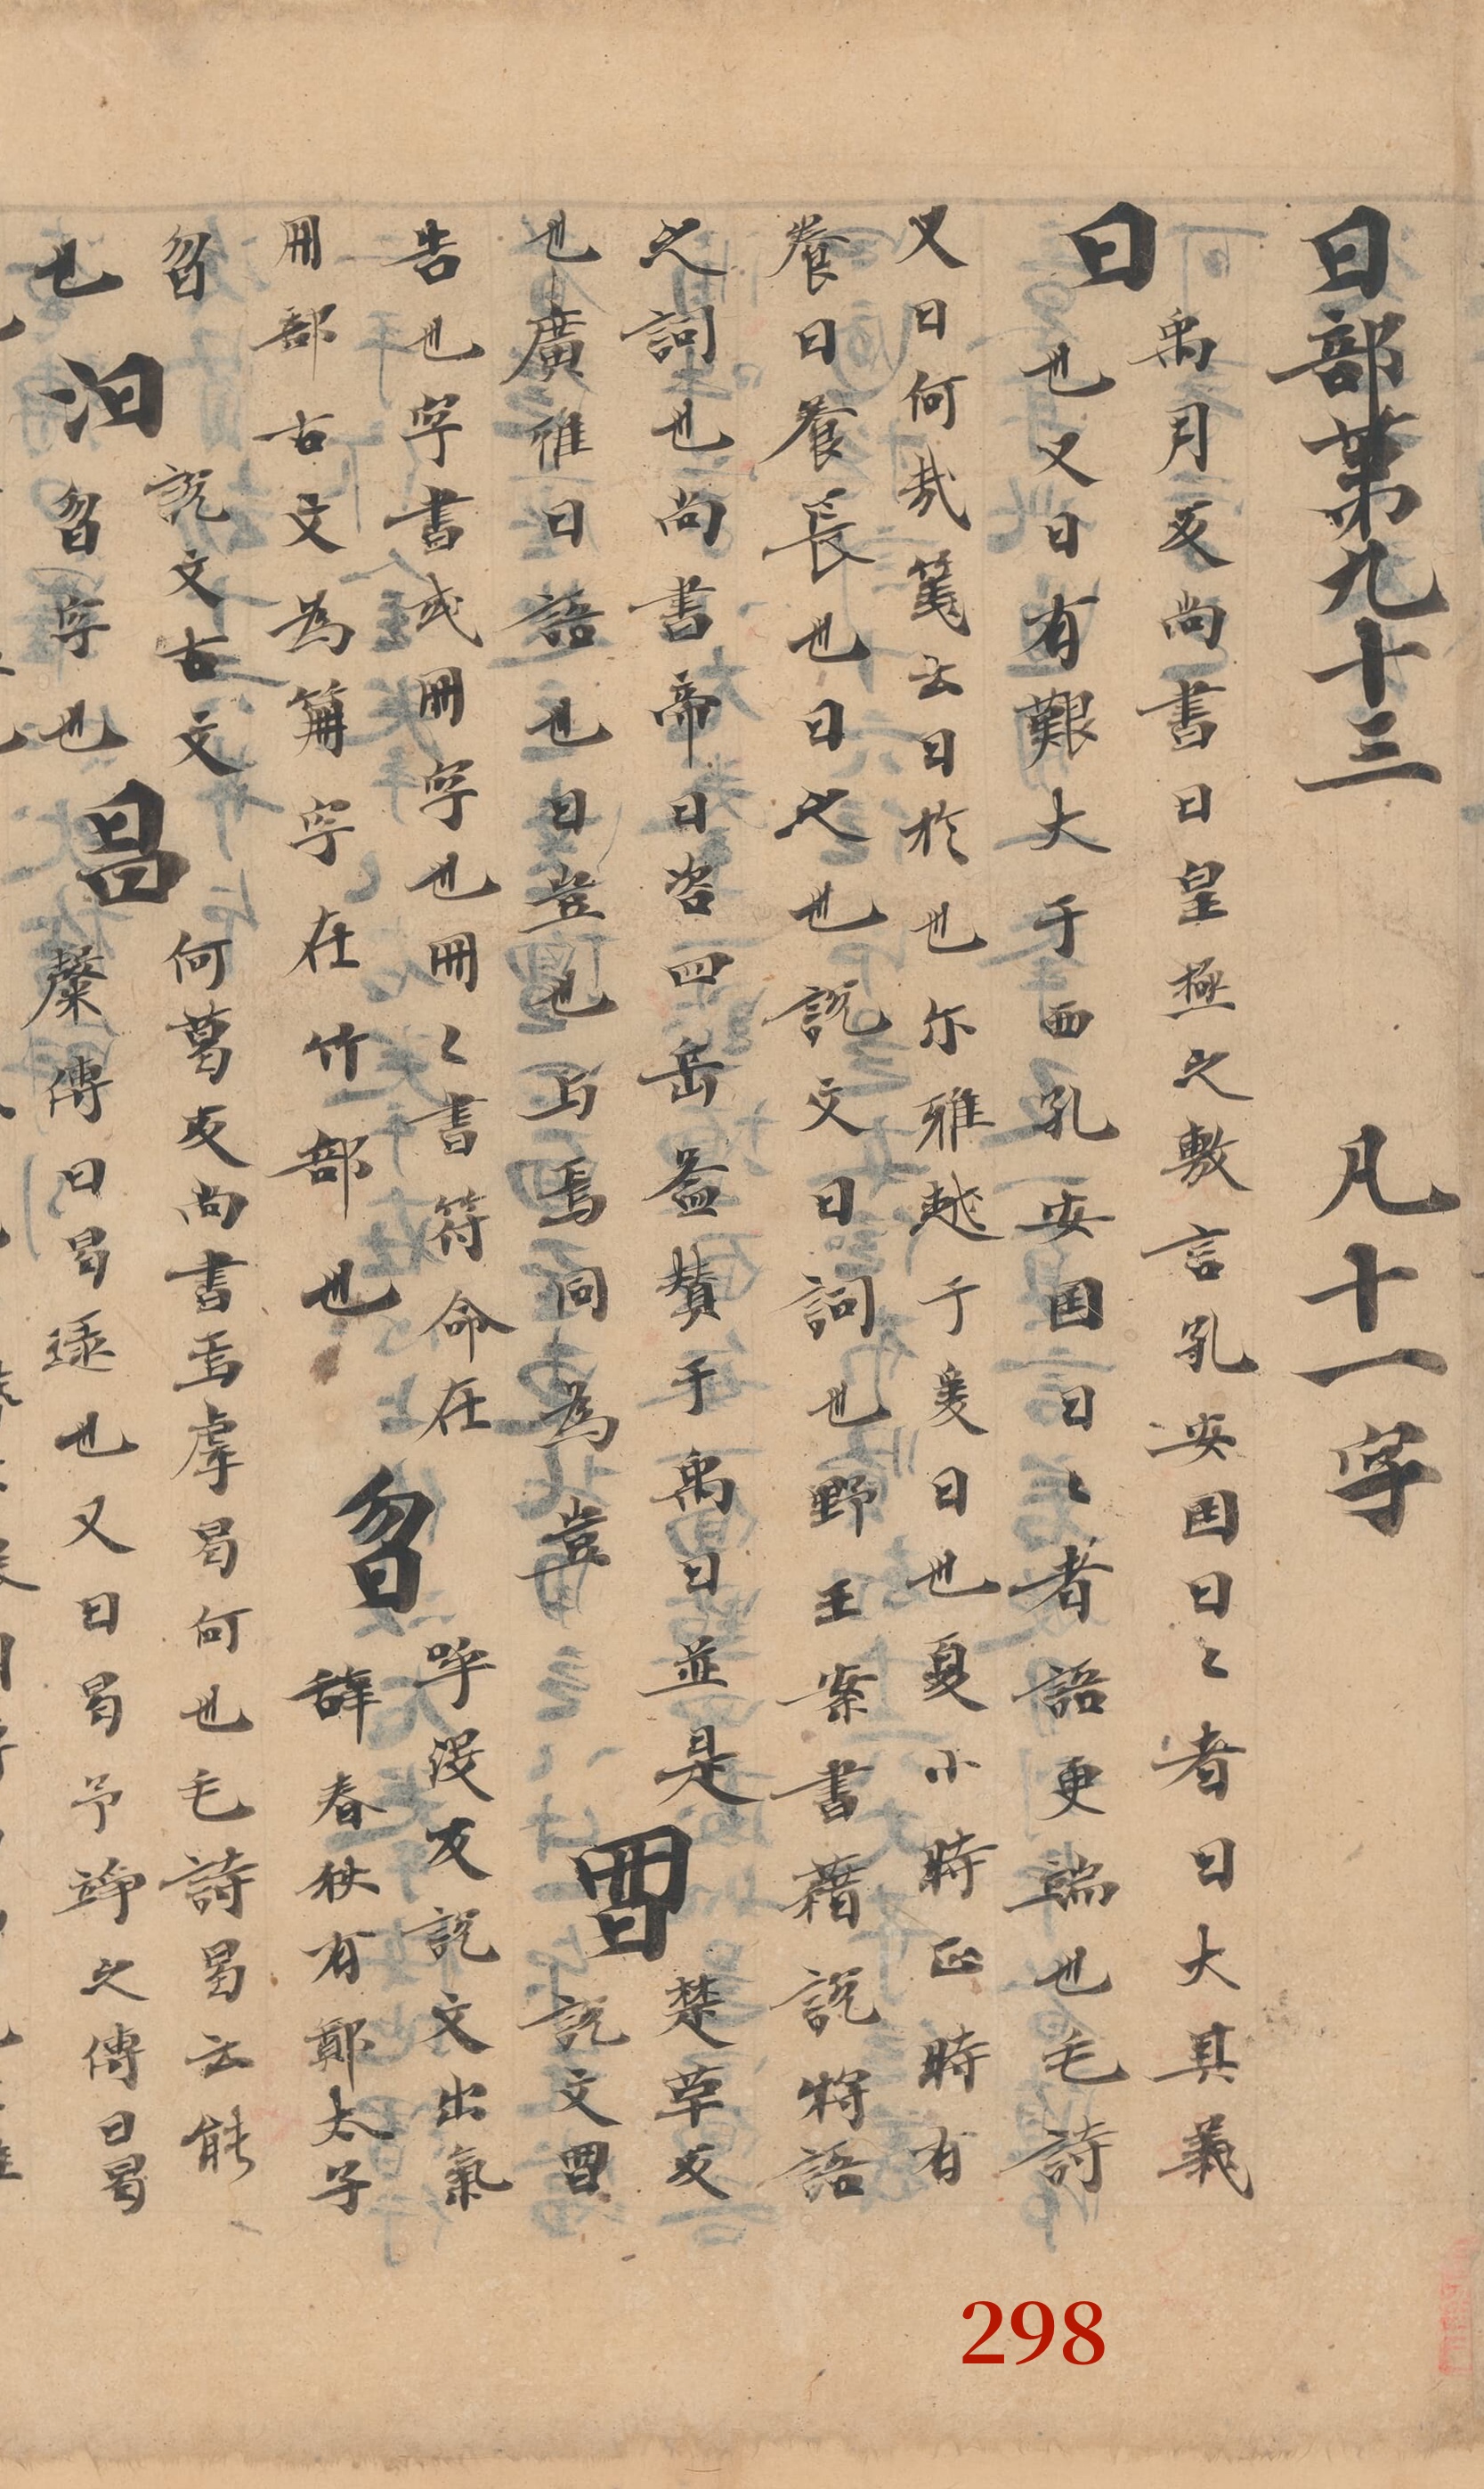 曰部第九十三 凡十一字
曰
禹月反尚書曰皇極之敷言孔安国曰〻者曰大其義
也又曰有艱大于西孔安国曰〻者語更端也毛詩
又曰何哉箋云曰於也尓雅越于爰曰也夏小時正時有
養曰養長也曰之也說文曰詞也野王案書藉說将語
之詞也尚書帝曰咨四岳益賛于禹曰並是
也廣雅曰語也曰豈也与焉同為豈
𠕋曰
楚革反
說文𠕋曰
告也字書或冊字也冊〻書符命在
冊部古文為笧字在竹部也
曶
呼没反說文出氣
辞春秋有鄭太子
曶
也
汩
說文古文
曶字也
曷
何葛反尚書焉虖曷何也毛詩曷云能
糓傳曰曷逮也又曰曷予竫之傳曰曷
298